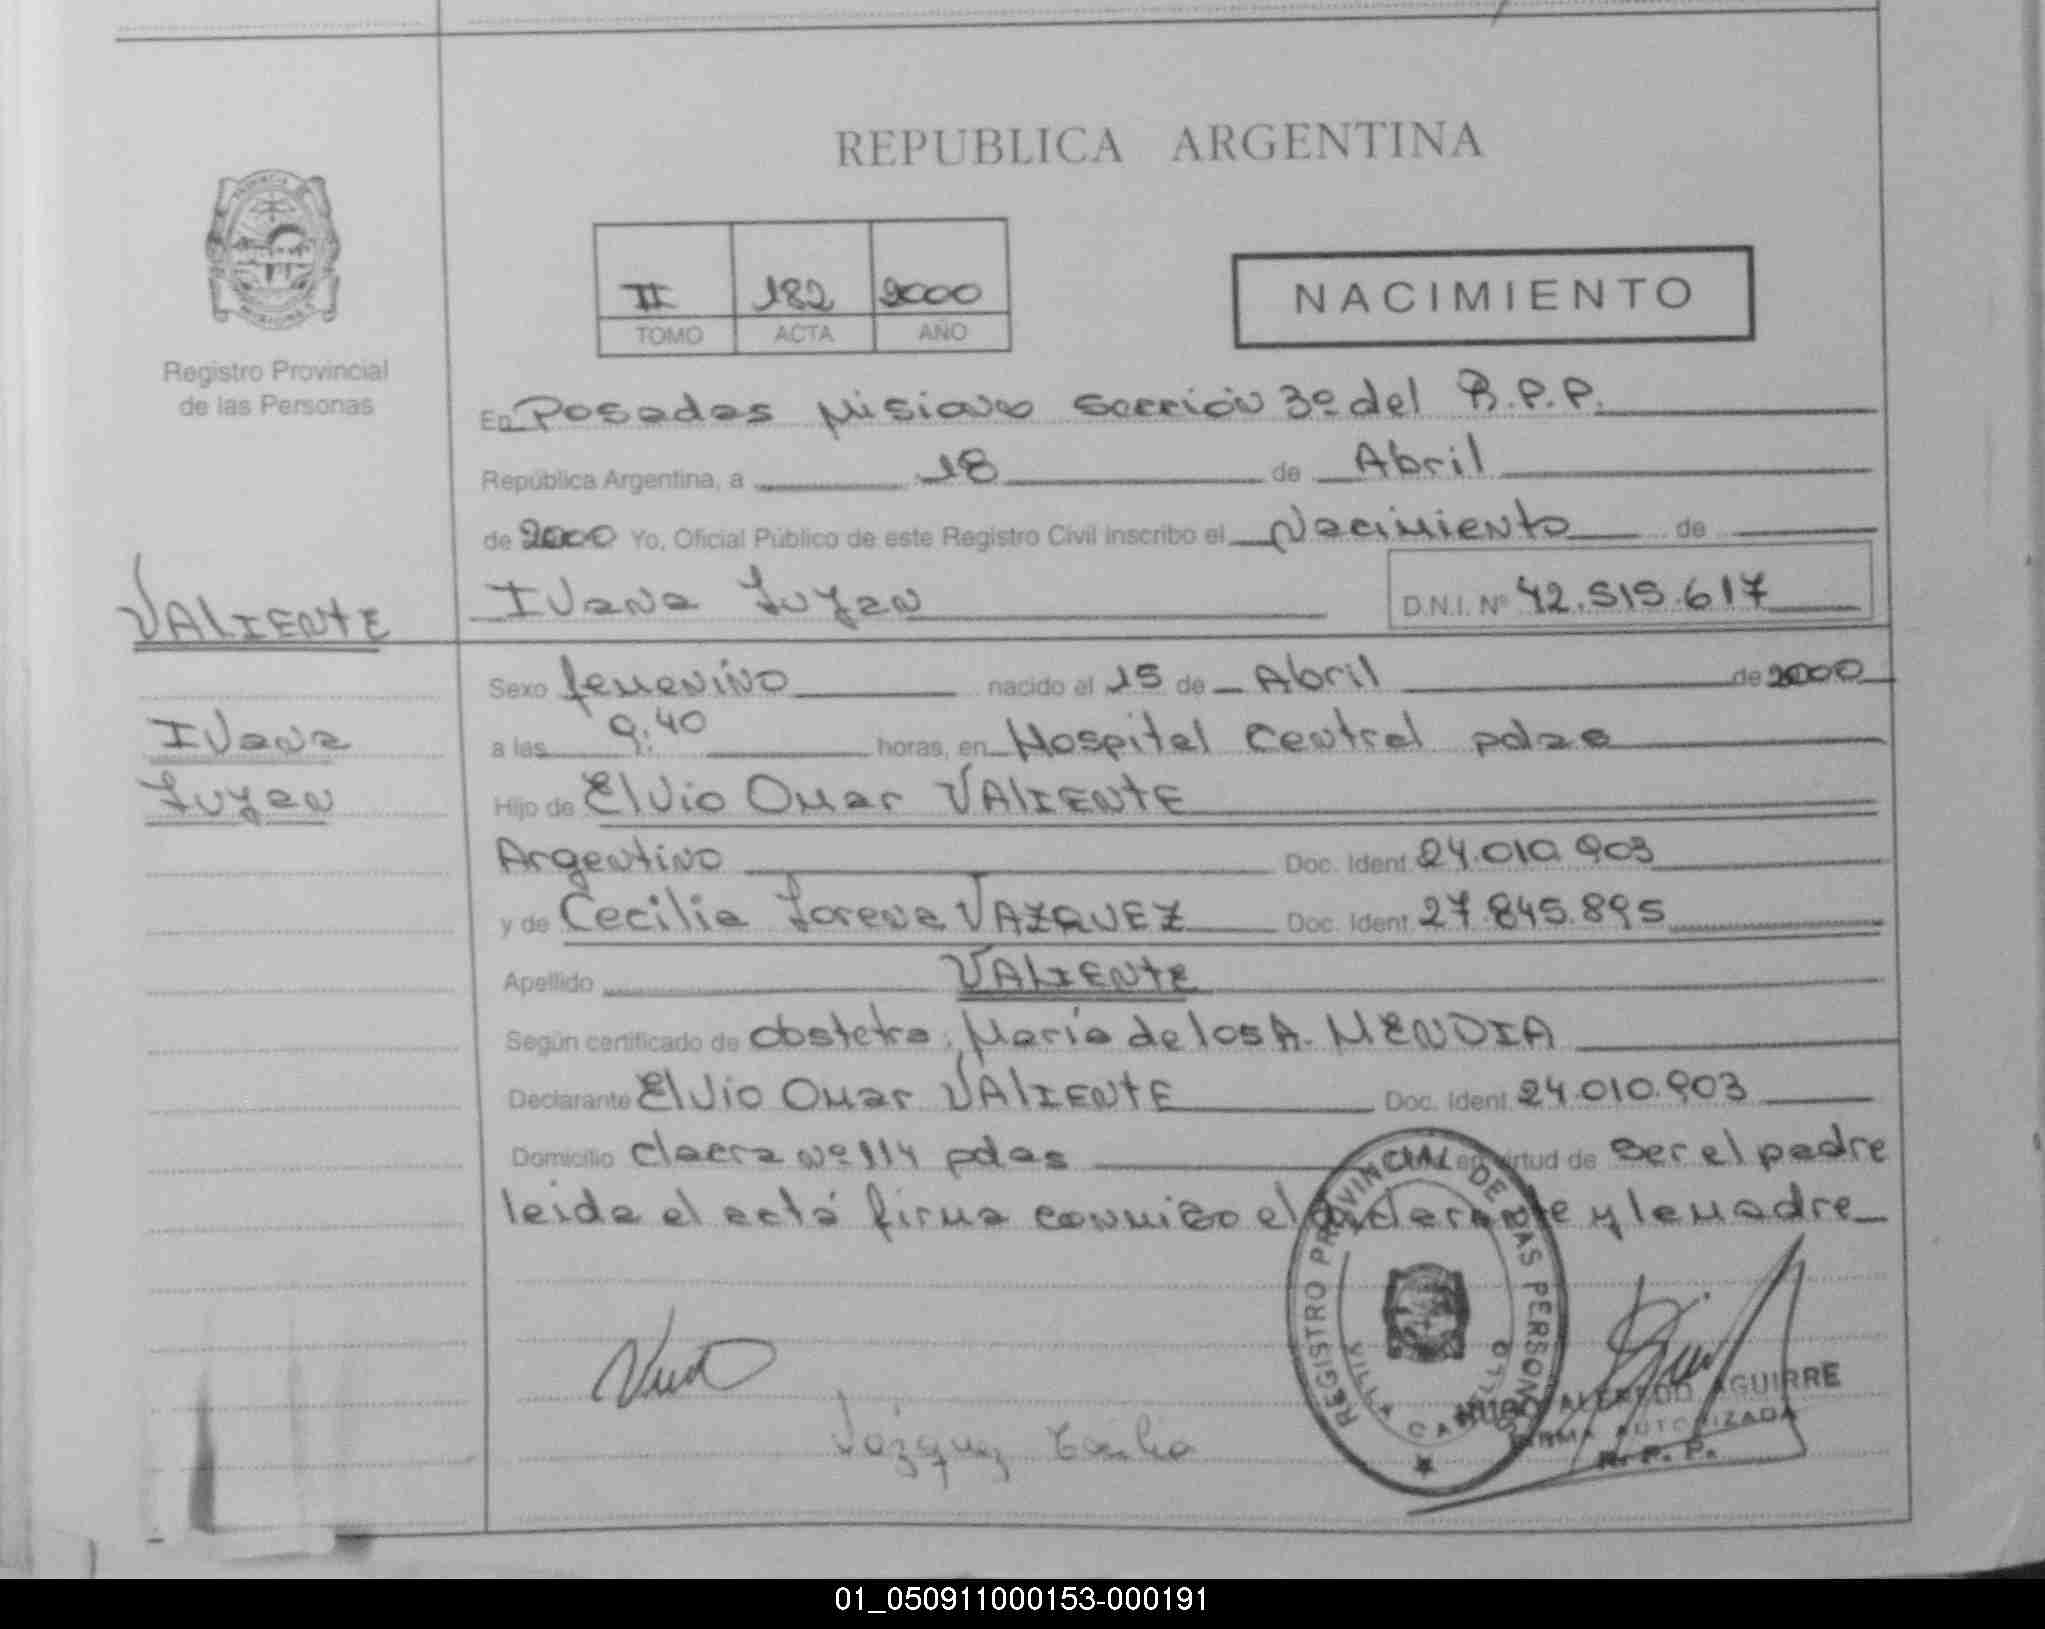 REPUBLICA ARGENTINA
II 182 2000
TOMO ACTA AÑO
NACIMIENTO
Registro Provincial
de las Personas
En Posadas Misiones sección 3º del R.P.P.
República Argentina, a 18 de Abril
de 2000 Yo, Oficial Público de este Registro Civil inscribo el Nacimiento de
Ivana Luján D.N.I. Nº 42.515.617
VALIENTE
Ivana
Luján
Sexo femenino nacido el 15 de Abril de 2000
a las 9:40 horas, en Hospital Central pdas
Hijo de Elvio Omar VALIENTE
Argentino Doc. Ident. 24.010.903
y de Cecilia Lorena VAZQUEZ Doc. Ident. 27.845.895
Apellido VALIENTE
Según certificado de obstetra: María de los A. MENDIA
Declarante Elvio Omar VALIENTE Doc. Ident. 24.010.903
Domicilio chacra nº 114 pdas en virtud de ser el padre
leida el acta firma conmigo el declarante y la madre
REGISTRO PROVINCIAL DE LAS PERSONAS
VILLA CABELLO
Vázquez Cecilia
HUGO ALFREDO AGUIRRE
FIRMA AUTORIZADA
R. P. P.
01_050911000153-000191